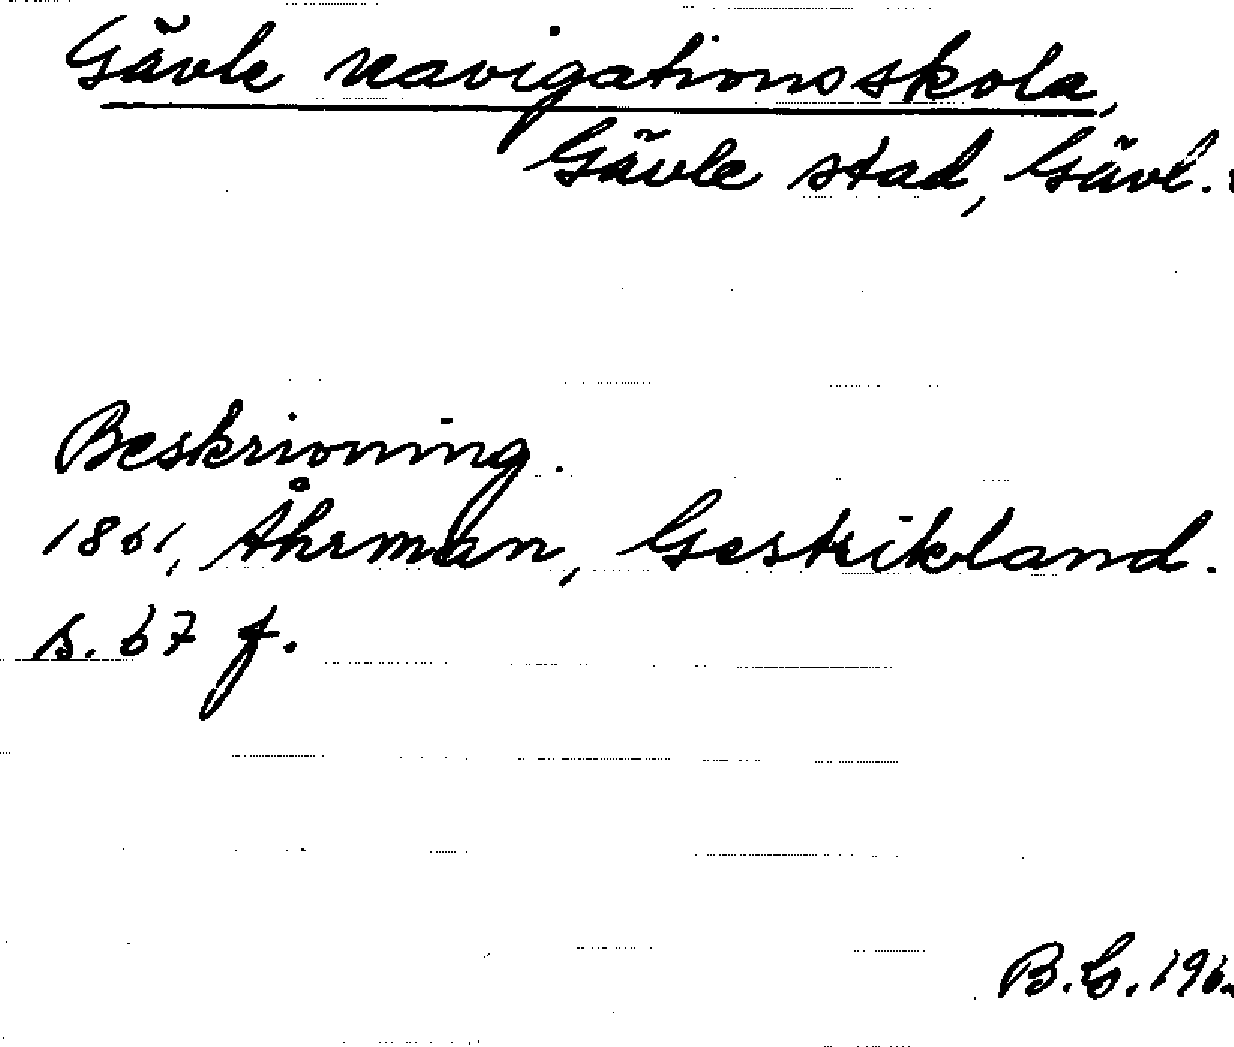 Gävle navigationsskola,
Gävle stad, Gävl.
Beskrivning.
1861, Åhrman, Gestrikland.
s. 67 f.
B.G. 196